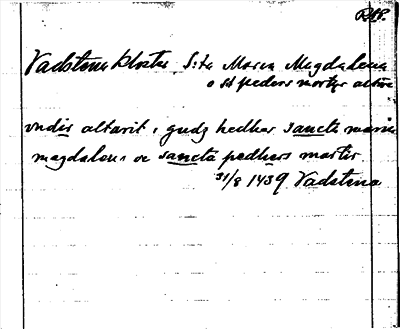 RAP.
Vadstena kloster S:ta Maria Magdalena
o St peders martyr altare
vndir altarit i gudz hedher sancta maria
magdalena oc sancta pedhers martir
31/8 1439 Vadstena